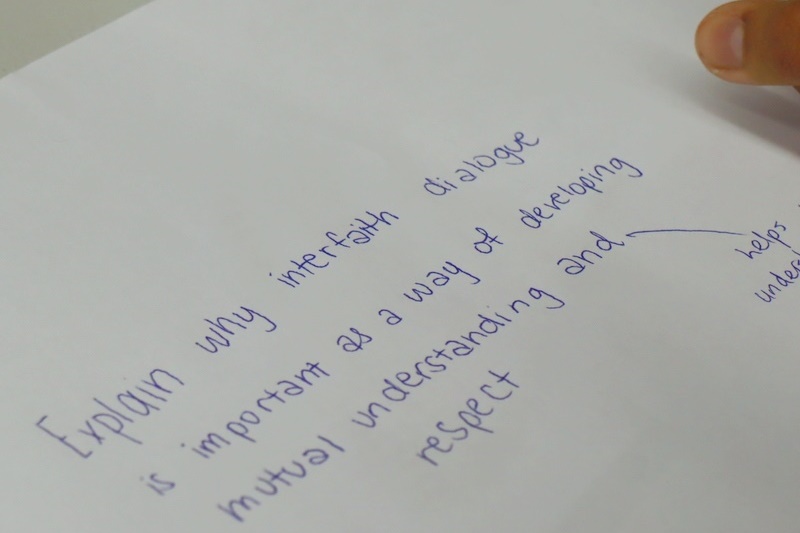 Explain why interfaith dialogue
is important as a way of developing
mutual understanding and
respect
helps